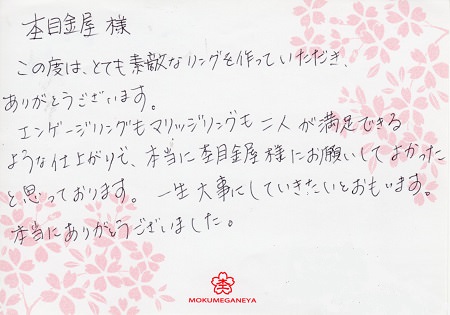 杢目金屋 様
この度は、とても素敵なリングを作っていただき、
ありがとうございます。
エンゲージリングもマリッジリングも二人が満足できる
ような仕上がりで、本当に杢目金屋様にお願いしてよかった
と思っております。一生大事にしていきたいとおもいます。
本当にありがとうございました。
MOKUMEGANEYA